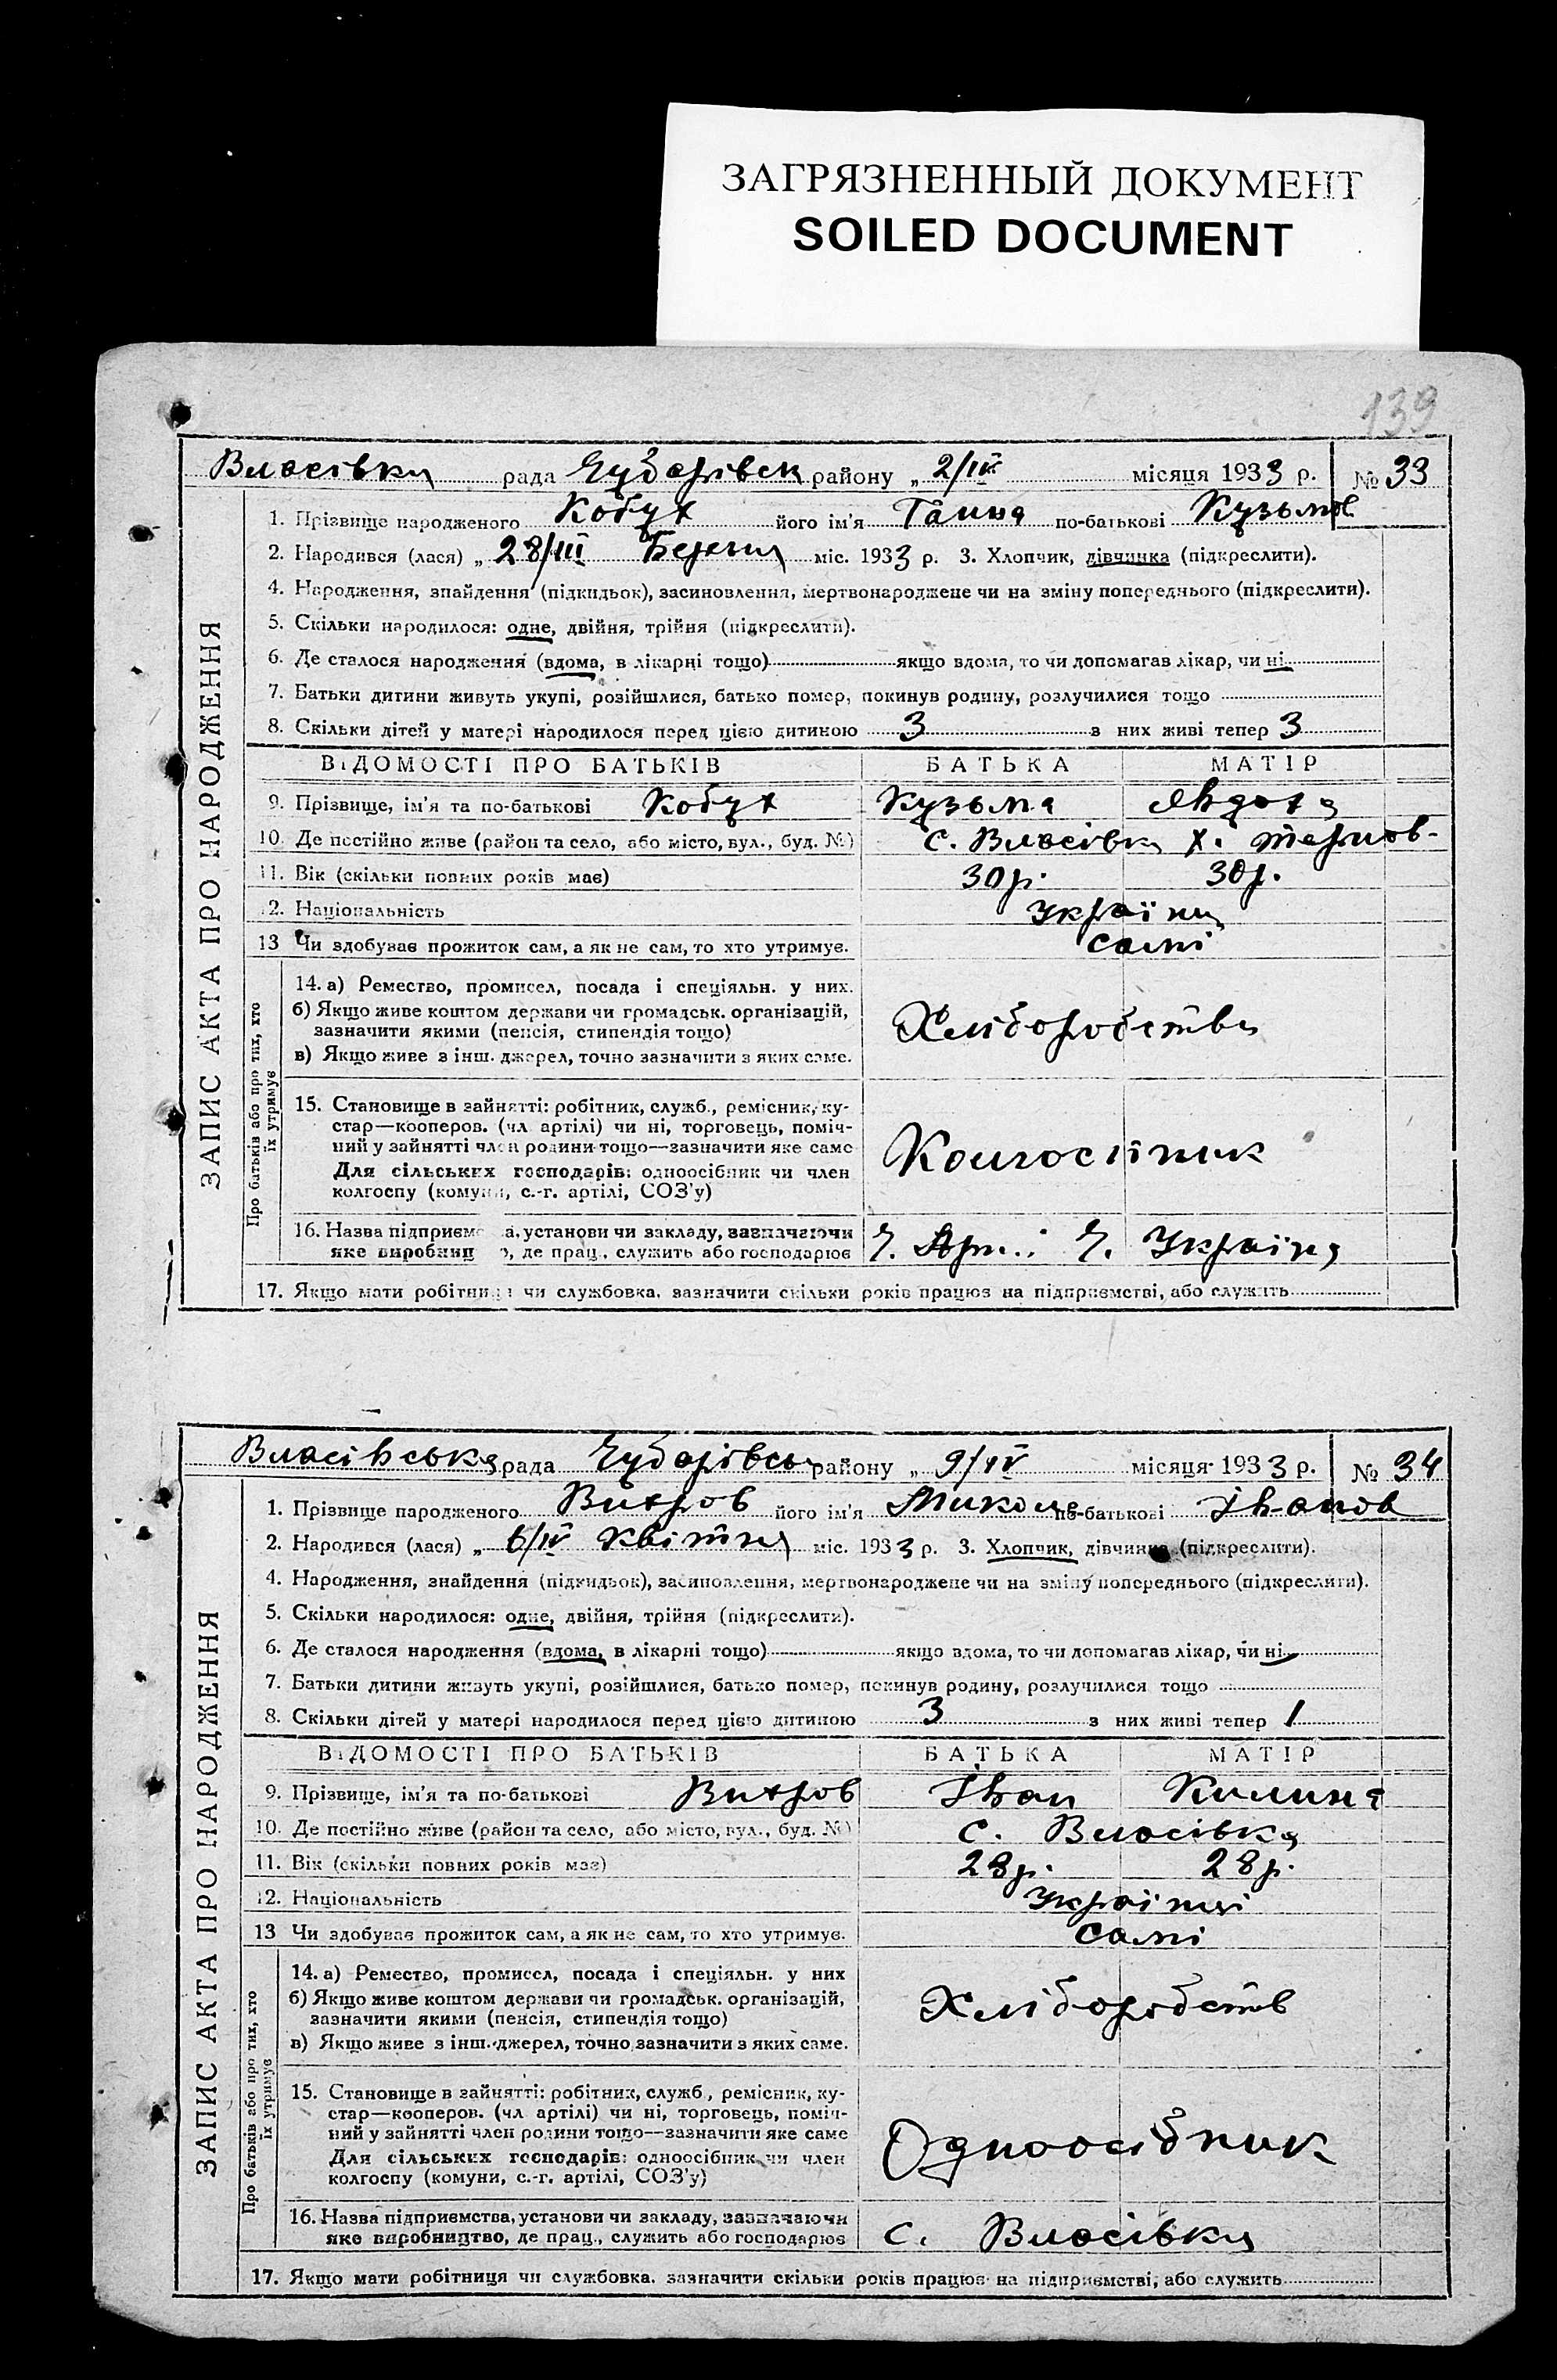 ЗАГРЯЗНЕННЫЙ ДОКУМЕНТ
SOILED DOCUMENT
139
ЗАПИС АКТА ПРО НАРОДЖЕННЯ
Власівка рада Чубарівськ району „ 2/IV місяця 1933 р. № 33
1. Прізвище народженого Кобут його ім'я Ганна по-батькові Кузьмов
2. Народився (лася) „ 28/III Березня міс. 1933 р. 3. Хлопчик, дівчинка (підкреслити).
4. Народження, знайдення (підкидьок), засиновлення, мертвонароджене чи на зміну попереднього (підкреслити).
5. Скільки народилося: одне, двійня, трійня (підкреслити).
6. Де сталося народження (вдома, в лікарні тощо) якщо вдома, то чи допомагав лікар, чи ні
7. Батьки дитини живуть укупі, розійшлися, батько помер, покинув родину, розлучилися тощо
8. Скільки дітей у матері народилося перед цією дитиною 3 з них живі тепер 3
ВІДОМОСТІ ПРО БАТЬКІВ БАТЬКА МАТІР
9. Прізвище, ім'я та по-батькові Кобут Кузьма Явдоха
10. Де постійно живе (район та село, або місто, вул., буд. №) с. Власівка х. Тернов-
11. Вік (скільки повних років має) 30 р. 30 р.
12. Національність Українц
13 Чи здобуває прожиток сам, а як не сам, то хто утримує. Самі
Про батьків або про тих, хто їх утримує
14. а) Ремество, промисел, посада і спеціяльн. у них.
б) Якщо живе коштом держави чи громадськ. організацій,
зазначити якими (пенсія, стипендія тощо)
в) Якщо живе з інш. джерел, точно зазначити з яких саме.
Хліборобство
15. Становище в зайнятті: робітник, служб., ремісник, ку-
стар—кооперов. (чл. артілі) чи ні, торговець, поміч-
ний у зайнятті член родини тощо—зазначити яке саме
Для сільських господарів: одноосібник чи член
колгоспу (комуни, с.-г. артілі, СОЗ'у)
Колгоспник
16. Назва підприємства, установи чи закладу, зазначаючи
яке виробництво, де прац., служить або господарює
Ч. Арт. Ч. Україна
17. Якщо мати робітниця чи службовка, зазначити скільки років працює на підприємстві, або служить
ЗАПИС АКТА ПРО НАРОДЖЕННЯ
Власівська рада Чубарівськ району „ 9/IV місяця 1933 р. № 34
1. Прізвище народженого Вихров його ім'я Микола по-батькові Іванов
2. Народився (лася) „ 6/IV Квітня міс. 1933 р. 3. Хлопчик, дівчинка (підкреслити).
4. Народження, знайдення (підкидьок), засиновлення, мертвонароджене чи на зміну попереднього (підкреслити).
5. Скільки народилося: одне, двійня, трійня (підкреслити).
6. Де сталося народження (вдома, в лікарні тощо) якщо вдома, то чи допомагав лікар, чи ні
7. Батьки дитини живуть укупі, розійшлися, батько помер, покинув родину, розлучилися тощо
8. Скільки дітей у матері народилося перед цією дитиною 3 з них живі тепер 1
ВІДОМОСТІ ПРО БАТЬКІВ БАТЬКА МАТІР
9. Прізвище, ім'я та по-батькові Вихров Іван Килина
10. Де постійно живе (район та село, або місто, вул., буд. №) с. Власівка
11. Вік (скільки повних років має) 28 р. 28 р.
12. Національність Українці
13 Чи здобуває прожиток сам, а як не сам, то хто утримує. Самі
Про батьків або про тих, хто їх утримує
14. а) Ремество, промисел, посада і спеціяльн. у них
б) Якщо живе коштом держави чи громадськ. організацій,
зазначити якими (пенсія, стипендія тощо)
в) Якщо живе з інш. джерел, точно зазначити з яких саме.
Хліборобств
15. Становище в зайнятті: робітник, служб., ремісник, ку-
стар—кооперов. (чл артілі) чи ні, торговець, поміч-
ний у зайнятті член родини тощо—зазначити яке саме
Для сільських господарів: одноосібник чи член
колгоспу (комуни, с.-г. артілі, СОЗ'у)
Одноосібник
16. Назва підприємства, установи чи закладу, зазначаючи
яке виробництво, де прац., служить або господарює
с. Власівка
17. Якщо мати робітниця чи службовка, зазначити скільки років працює на підприємстві, або служить